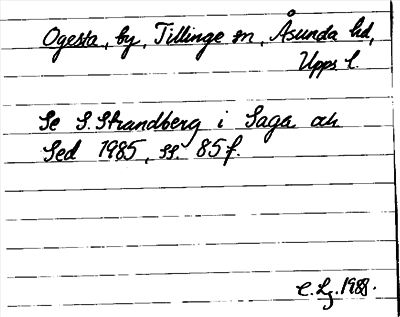 Ogesta, by, Tillinge sn, Åsunda hd,
Upps l.
Se S. Strandberg i Saga och
Sed 1985, ss. 85 f.
E. Lj. 1988.